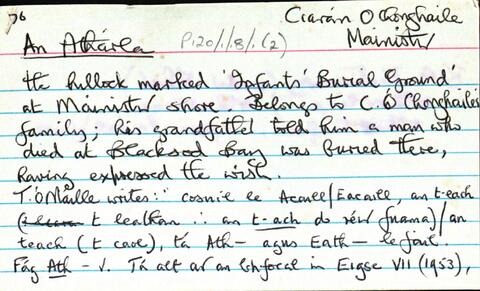 76
Ciarán O Chonghaile
An Atharla P120/1/8/1(2) Mainistir
the hillock marked 'Infants' Burial Ground'
at Mainistir shore. Belongs to C. Ó Chonghaile's
family; his grandfather told him a man who
died at Blacksod Bay was buried there,
having expressed the wish.
T. Ó Máille writes: "cosúil le Acaill/Eacaill, an t-each
t leathan ∴ an t-ach do réir /an
teach (t caol), tá Ath— agus Eath—
Fág Ath — v. Tá alt ar an bhfocal in Eigse VII (1953),